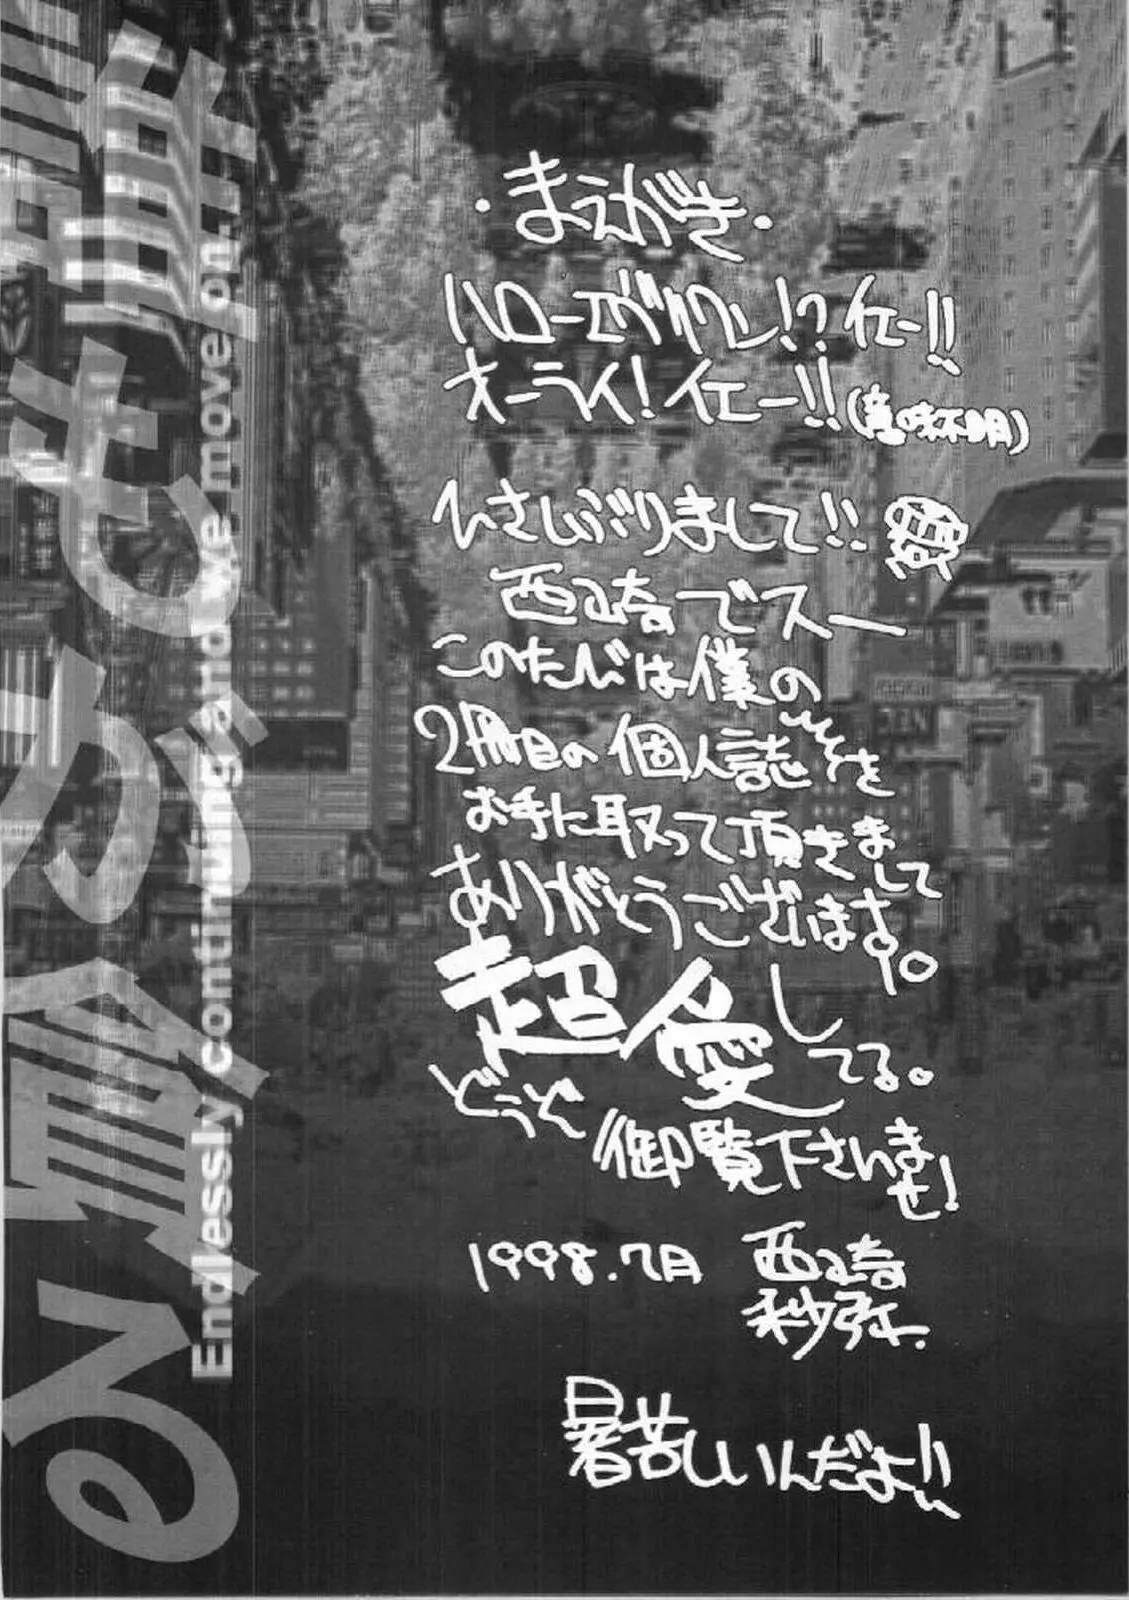 ・まえがき・
ハローエヴリワン!?イエー!!
オーライ!イエー!!(意味不明)
ひさしぶりまして!!
西崎でスー
このたびは僕の
2冊目の個人誌
を
お手に取って頂きまして
ありがとうございます。
超愛してる。
どうぞ
御覧下さいませ!
1998.7月 西崎
秒弥.
暑苦しいんだよ!!
Endlessly continuing and we move on.